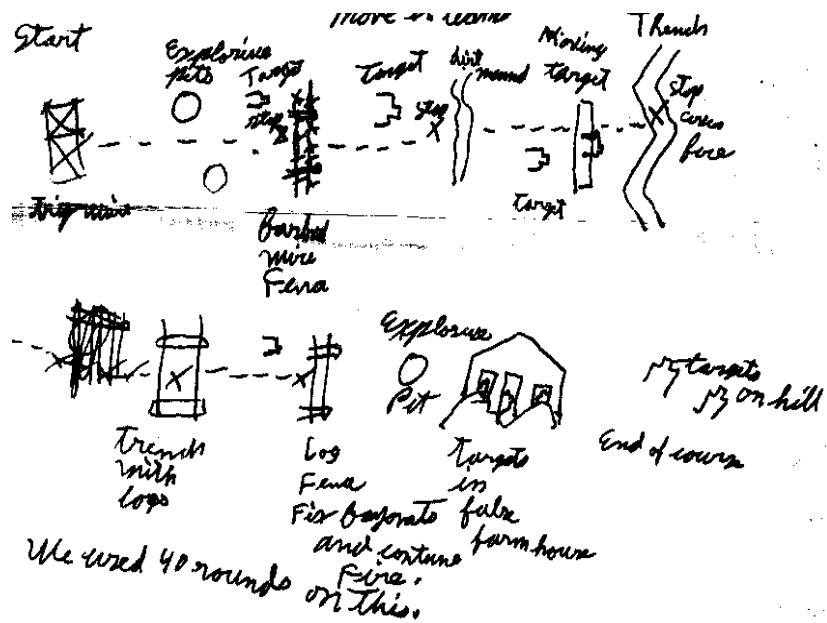 move in teams
Start
Explosive
pits
Target
stop
Target
stop
dirt
mound
Moving
target
Target
Trench
stop
fire
trip wire
Barbed
wire
Fence
trench
with
logs
Log
Fence
Fix Bayonets
and contune
Fire.
Explosive
Pit
targets
in
false
farm house
targets
on hill
End of course
We used 40 rounds
on this.